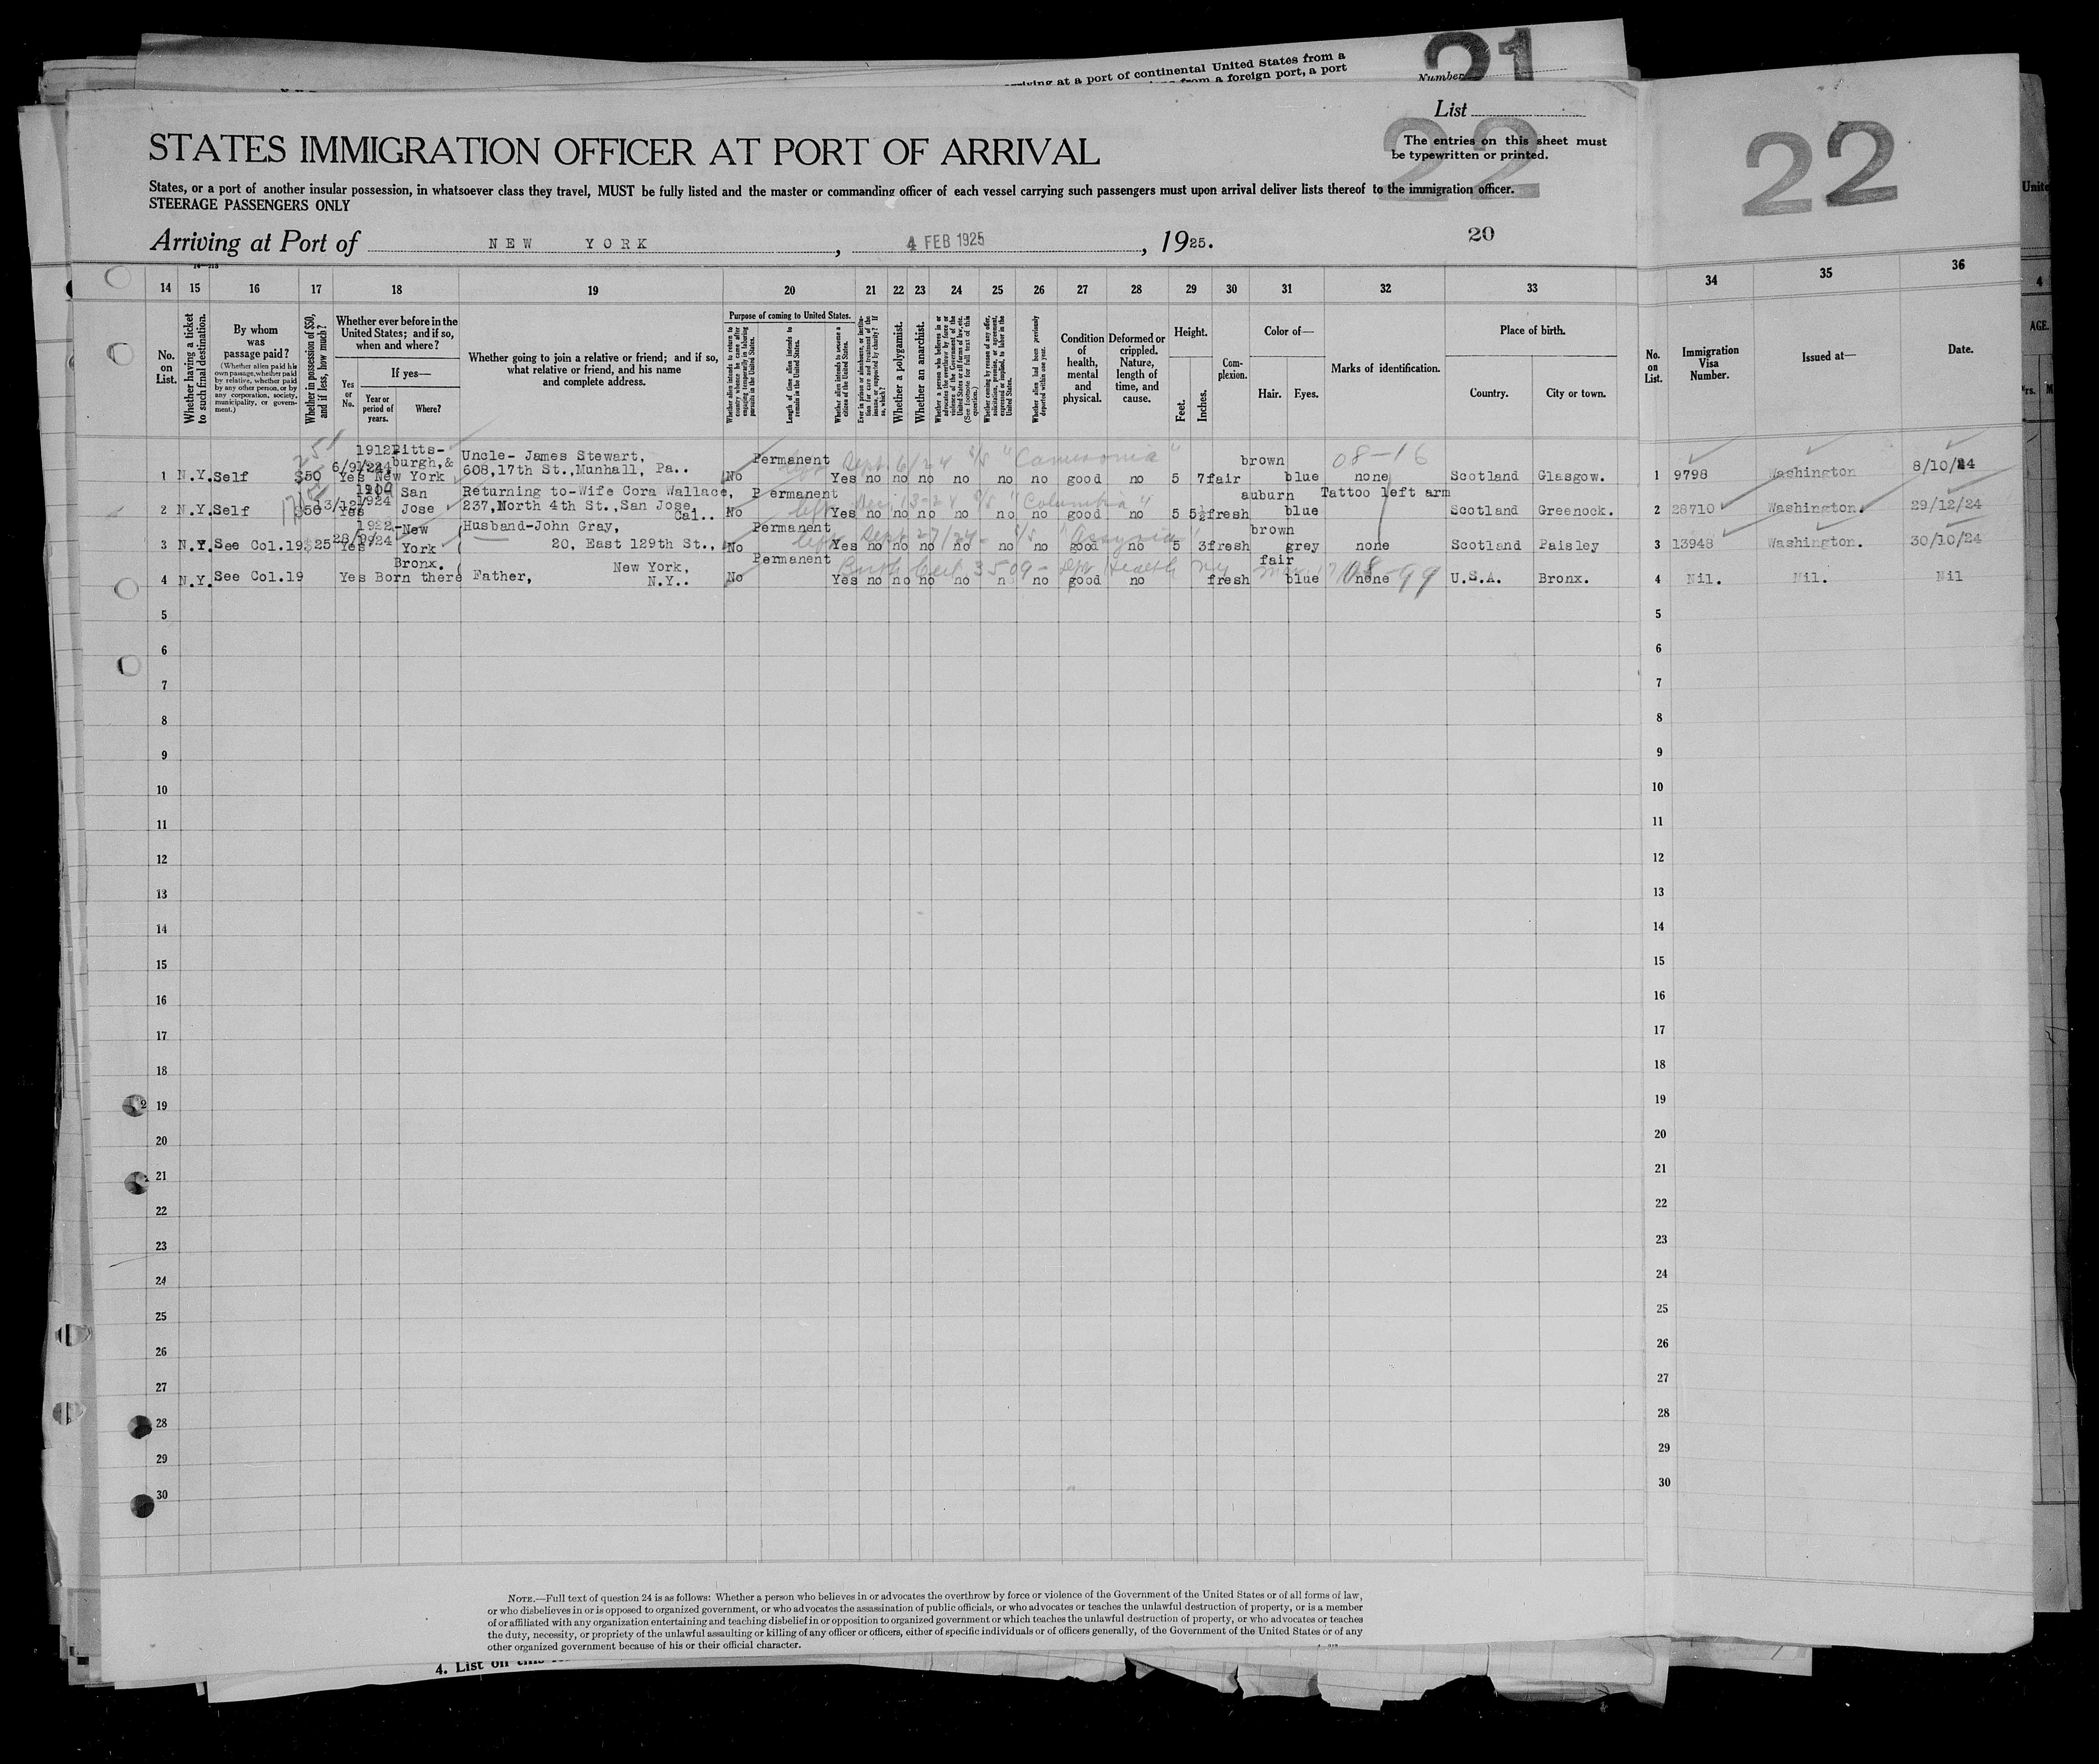 arriving at a port of continental United States from a
from a foreign port, a port
Number
21
List
22
STATES IMMIGRATION OFFICER AT PORT OF ARRIVAL
The entries on this sheet must
be typewritten or printed.
States, or a port of another insular possession, in whatsoever class they travel, MUST be fully listed and the master or commanding officer of each vessel carrying such passengers must upon arrival deliver lists thereof to the immigration officer.
STEERAGE PASSENGERS ONLY
Arriving at Port of NEW YORK, 4 FEB 1925, 1925.
20
22
14 15 16 17 18 19 20 21 22 23 24 25 26 27 28 29 30 31 32 33 34 35 36
No. on List.
Whether having a ticket to such final destination.
By whom was passage paid?
(Whether alien paid his own passage, whether paid by relative, whether paid by any other person, or by any corporation, society, municipality, or government.)
Whether in possession of $50, and if less, how much?
Whether ever before in the United States; and if so, when and where?
Yes or No.
If yes—
Year or period of years.
Where?
Whether going to join a relative or friend; and if so, what relative or friend, and his name and complete address.
Purpose of coming to United States.
Whether alien intends to return to country whence he came after engaging temporarily in laboring pursuits in the United States.
Length of time alien intends to remain in the United States.
Whether alien intends to become a citizen of the United States.
Ever in prison or almshouse, or institution for care and treatment of the insane, or supported by charity? If so, which?
Whether a polygamist.
Whether an anarchist.
Whether a person who believes in or advocates the overthrow by force or violence of the Government of the United States or all forms of law, etc. (See footnote for full text of this question.)
Whether coming by reason of any offer, solicitation, promise, or agreement, expressed or implied, to labor in the United States.
Whether alien had been previously deported within one year.
Condition of health, mental and physical.
Deformed or crippled. Nature, length of time, and cause.
Height.
Feet. Inches.
Complexion.
Color of—
Hair. Eyes.
Marks of identification.
Place of birth.
Country. City or town.
No. on List.
Immigration Visa Number.
Issued at—
Date.
1912 Pitts- Uncle- James Stewart, Permanent left Sept 6/24 S/S "Cameronia" brown 08-16
6/9/24 burgh,&
1 N.Y. Self $50 Yes New York 608,17th St.,Munhall, Pa.. No Yes no no no no no no good no 5 7 fair blue none Scotland Glasgow. 1 9798 Washington 8/10/24
San Returning to-Wife Cora Wallace, Permanent left Dec 13-24 S/S "Columbia" auburn Tattoo left arm
2 N.Y. Self $50 Yes 1924 Jose 237,North 4th St.,San Jose, Cal.. No Yes no no no no no no good no 5 5½ fresh blue Scotland Greenock. 2 28710 Washington. 29/12/24
1922- New Husband-John Gray, Permanent left Sept 27/24- S/S Assyria brown
3 N.Y. See Col.19 $25 Yes 28/9/24 York 20, East 129th St., No Yes no no no no no no good no 5 3 fresh grey none Scotland Paisley 3 13948 Washington. 30/10/24
Bronx. New York, Permanent Birth Cert 3509- Dept Health NY fair 08-99
4 N.Y. See Col.19 Yes Born there Father, N.Y.. No Yes no no no no n no good no fresh blue none U.S.A. Bronx. 4 Nil. Nil. Nil
5 5
6 6
7 7
8 8
9 9
10 10
11 11
12 12
13 13
14 14
15 15
16 16
17 17
18 18
19 19
20 20
21 21
22 22
23 23
24 24
25 25
26 26
27 27
28 28
29 29
30 30
NOTE.—Full text of question 24 is as follows: Whether a person who believes in or advocates the overthrow by force or violence of the Government of the United States or of all forms of law,
or who disbelieves in or is opposed to organized government, or who advocates the assassination of public officials, or who advocates or teaches the unlawful destruction of property, or is a member
of or affiliated with any organization entertaining and teaching disbelief in or opposition to organized government or which teaches the unlawful destruction of property, or who advocates or teaches
the duty, necessity, or propriety of the unlawful assaulting or killing of any officer or officers, either of specific individuals or of officers generally, of the Government of the United States or of any
other organized government because of his or their official character.
4. List on
Unite
4
AGE.